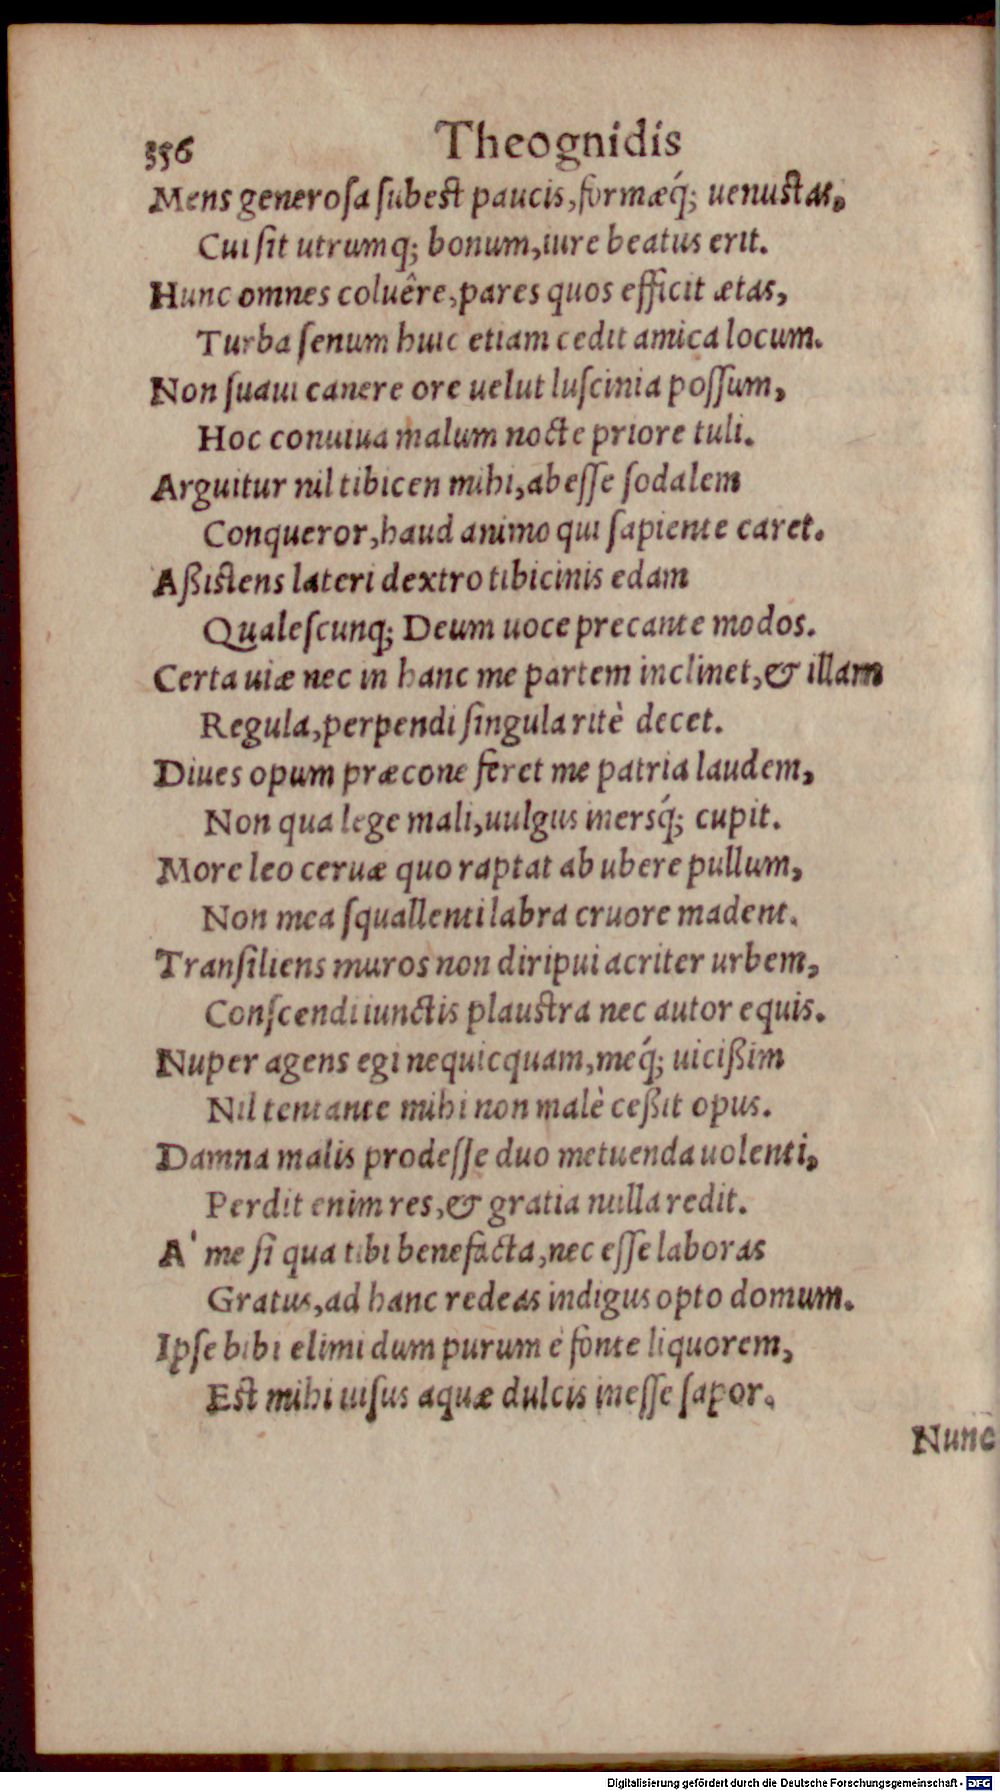 356 Theognidis
Mens generoſa ſubest paucis, formæq́; uenustas,
Cui ſit utrumq; bonum, iure beatus erit.
Hunc omnes coluêre, pares quos efficit ætas,
Turba ſenum huic etiam cedit amica locum.
Non ſuaui canere ore uelut luſcinia poſſum,
Hoc conuiua malum nocte priore tuli.
Arguitur nil tibicen mihi, abeſſe ſodalem
Conqueror, haud animo qui ſapiente caret.
Aßistens lateri dextro tibicinis edam
Qualeſcunq; Deum uoce precante modos.
Certa uiæ nec in hanc me partem inclinet, & illam
Regula, perpendi ſingula ritè decet.
Diues opum præcone feret me patria laudem,
Non qua lege mali, uulgus inersq́; cupit.
More leo ceruæ quo raptat ab ubere pullum,
Non mea ſquallenti labra cruore madent.
Tranſiliens muros non diripui acriter urbem,
Conſcendi iunctis plaustra nec autor equis.
Nuper agens egi nequicquam, meq́; uicißim
Nil tentante mihi non malè ceßit opus.
Damna malis prodeſſe duo metuenda uolenti,
Perdit enim res, & gratia nulla redit.
A' me ſi qua tibi benefacta, nec eſſe laboras
Gratus, ad hanc redeas indigus opto domum.
Ipſe bibi elimi dum purum è fonte liquorem,
Est mihi uiſus aquæ dulcis ineſſe ſapor.
Nunc
Digitalisierung gefördert durch die Deutsche Forschungsgemeinschaft - DFG